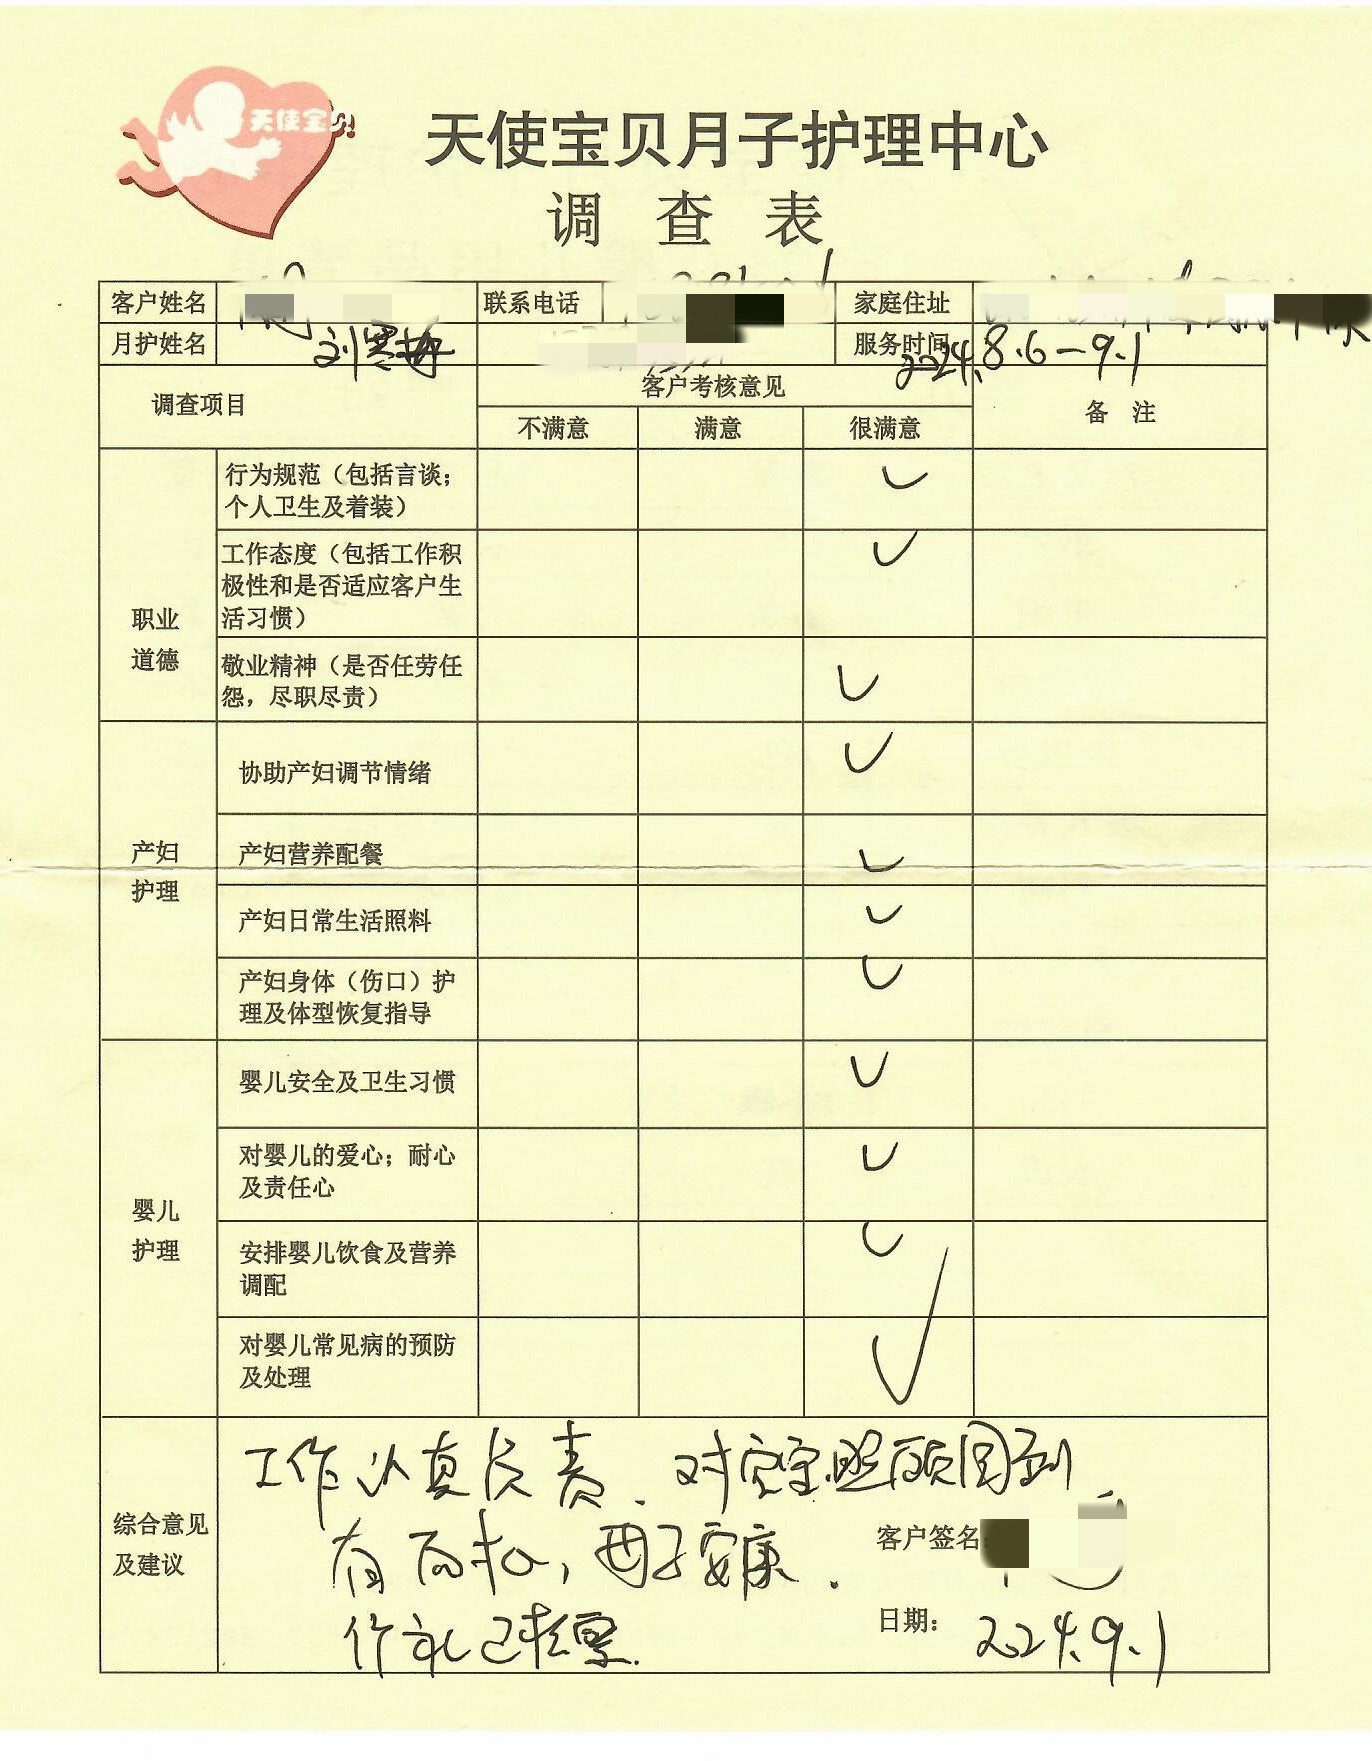 天使宝贝
天使宝贝月子护理中心
调 查 表
客户姓名 联系电话 家庭住址
月护姓名 刘 服务时间 2024.8.6-9.1
调查项目 客户考核意见 备 注
不满意 满意 很满意
职业
道德
行为规范（包括言谈；
个人卫生及着装）
工作态度（包括工作积
极性和是否适应客户生
活习惯）
敬业精神（是否任劳任
怨，尽职尽责）
产妇
护理
协助产妇调节情绪
产妇营养配餐
产妇日常生活照料
产妇身体（伤口）护
理及体型恢复指导
婴儿
护理
婴儿安全及卫生习惯
对婴儿的爱心；耐心
及责任心
安排婴儿饮食及营养
调配
对婴儿常见病的预防
及处理
综合意见
及建议
工作认真负责、对宝宝照顾周到、
母子安康.
客户签名：
日期： 2024.9.1